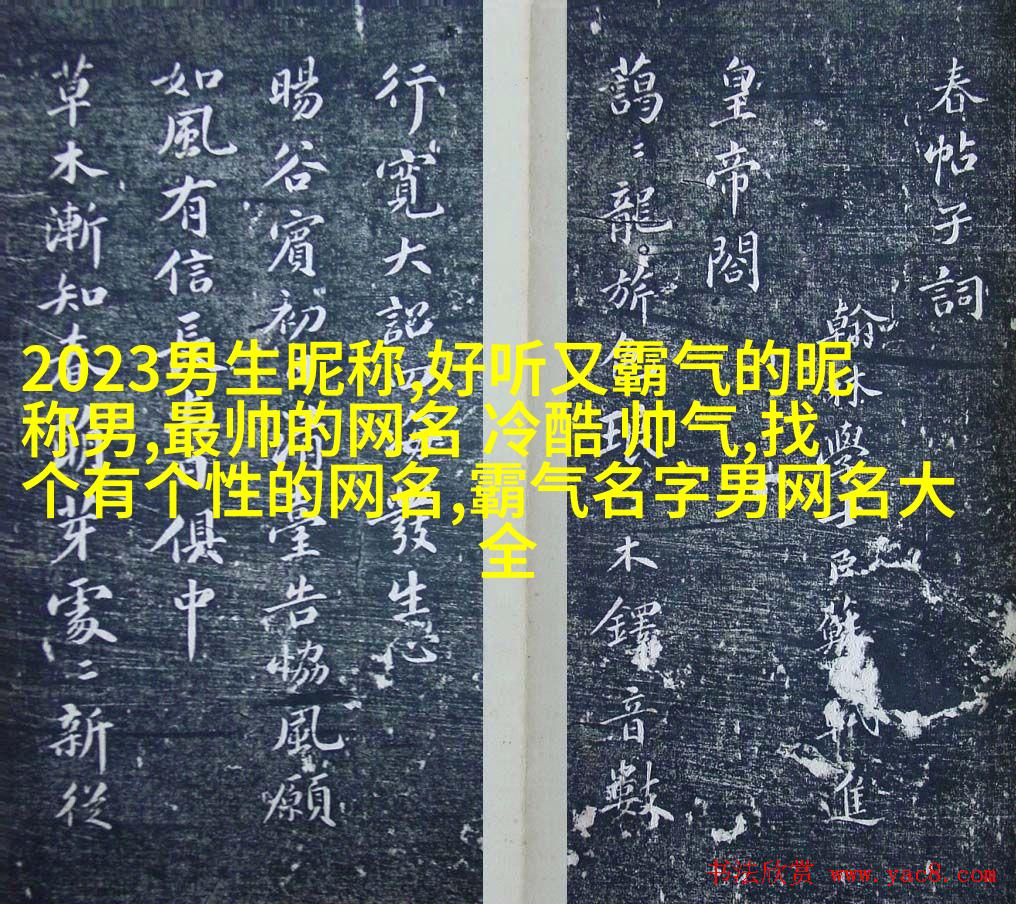 2023男生昵称,好听又霸气的昵
称男,最帅的网名 冷酷 帅气,找
个有个性的网名,霸气名字男网名大
全
春帖子詞
翰林學士臣蘇軾進
皇帝閤
藹〻龍旂色琅木鐸音數
行寬大詔四發生心
暘谷賓初日清臺告協風願
如風有信長與日俱中
草木漸知春萌芽處〻新從
书法欣赏 www.yac8.com